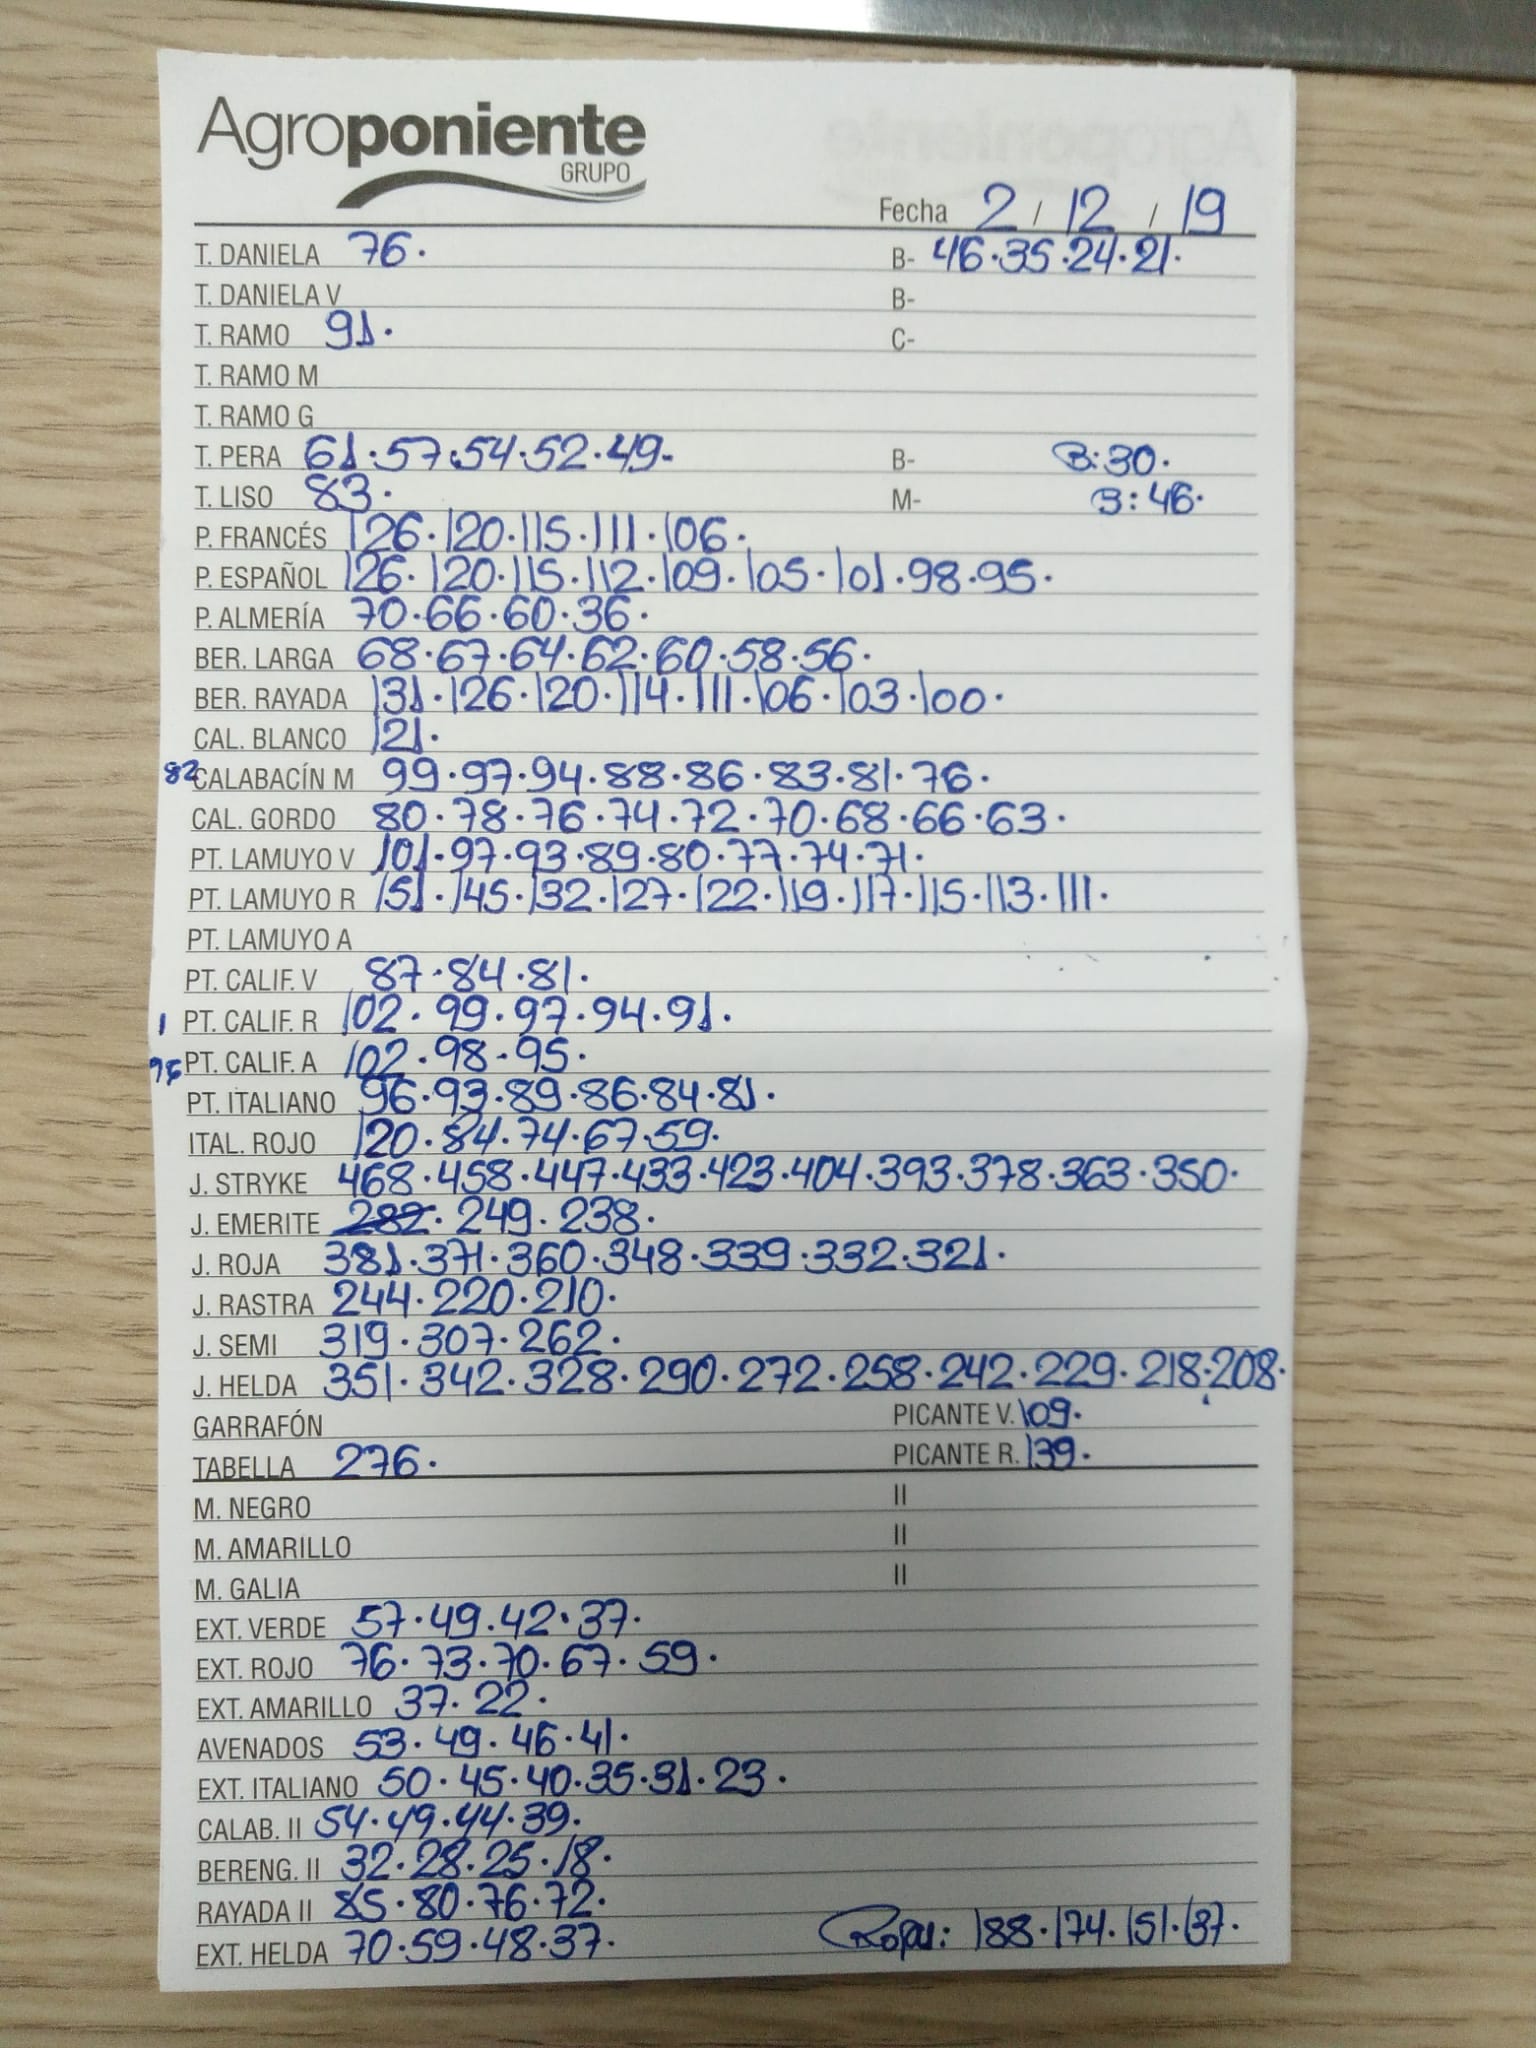 Agroponiente
GRUPO
Fecha 2 / 12 / 19
T. DANIELA 76. B- 46.35.24.21.
T. DANIELA V B-
T. RAMO 91. C-
T. RAMO M
T. RAMO G
T. PERA 61.57.54.52.49. B- B:30.
T. LISO 83. M- B:46.
P. FRANCÉS 126.120.115.111.106.
P. ESPAÑOL 126.120.115.112.109.105.101.98.95.
P. ALMERÍA 70.66.60.36.
BER. LARGA 68.67.64.62.60.58.56.
BER. RAYADA 131.126.120.114.111.106.103.100.
CAL. BLANCO 121.
82 CALABACÍN M 99.97.94.88.86.83.81.76.
CAL. GORDO 80.78.76.74.72.70.68.66.63.
PT. LAMUYO V 101.97.93.89.80.77.74.71.
PT. LAMUYO R 151.145.132.127.122.119.117.115.113.111.
PT. LAMUYO A
PT. CALIF. V 87.84.81.
PT. CALIF. R 102.99.97.94.91.
PT. CALIF. A 102.98.95.
PT. ITALIANO 96.93.89.86.84.81.
ITAL. ROJO 120.84.74.67.59.
J. STRYKE 468.458.447.433.423.404.393.378.363.350.
J. EMERITE 282.249.238.
J. ROJA 381.371.360.348.339.332.321.
J. RASTRA 244.220.210.
J. SEMI 319.307.262.
J. HELDA 351.342.328.290.272.258.242.229.218.208.
GARRAFÓN PICANTE V. 109.
TABELLA 276. PICANTE R. 139.
M. NEGRO II
M. AMARILLO II
M. GALIA II
EXT. VERDE 57.49.42.37.
EXT. ROJO 76.73.70.67.59.
EXT. AMARILLO 37.22.
AVENADOS 53.49.46.41.
EXT. ITALIANO 50.45.40.35.31.23.
CALAB. II 54.49.44.39.
BERENG. II 32.28.25.18.
RAYADA II 85.80.76.72.
EXT. HELDA 70.59.48.37. 188.174.151.137.